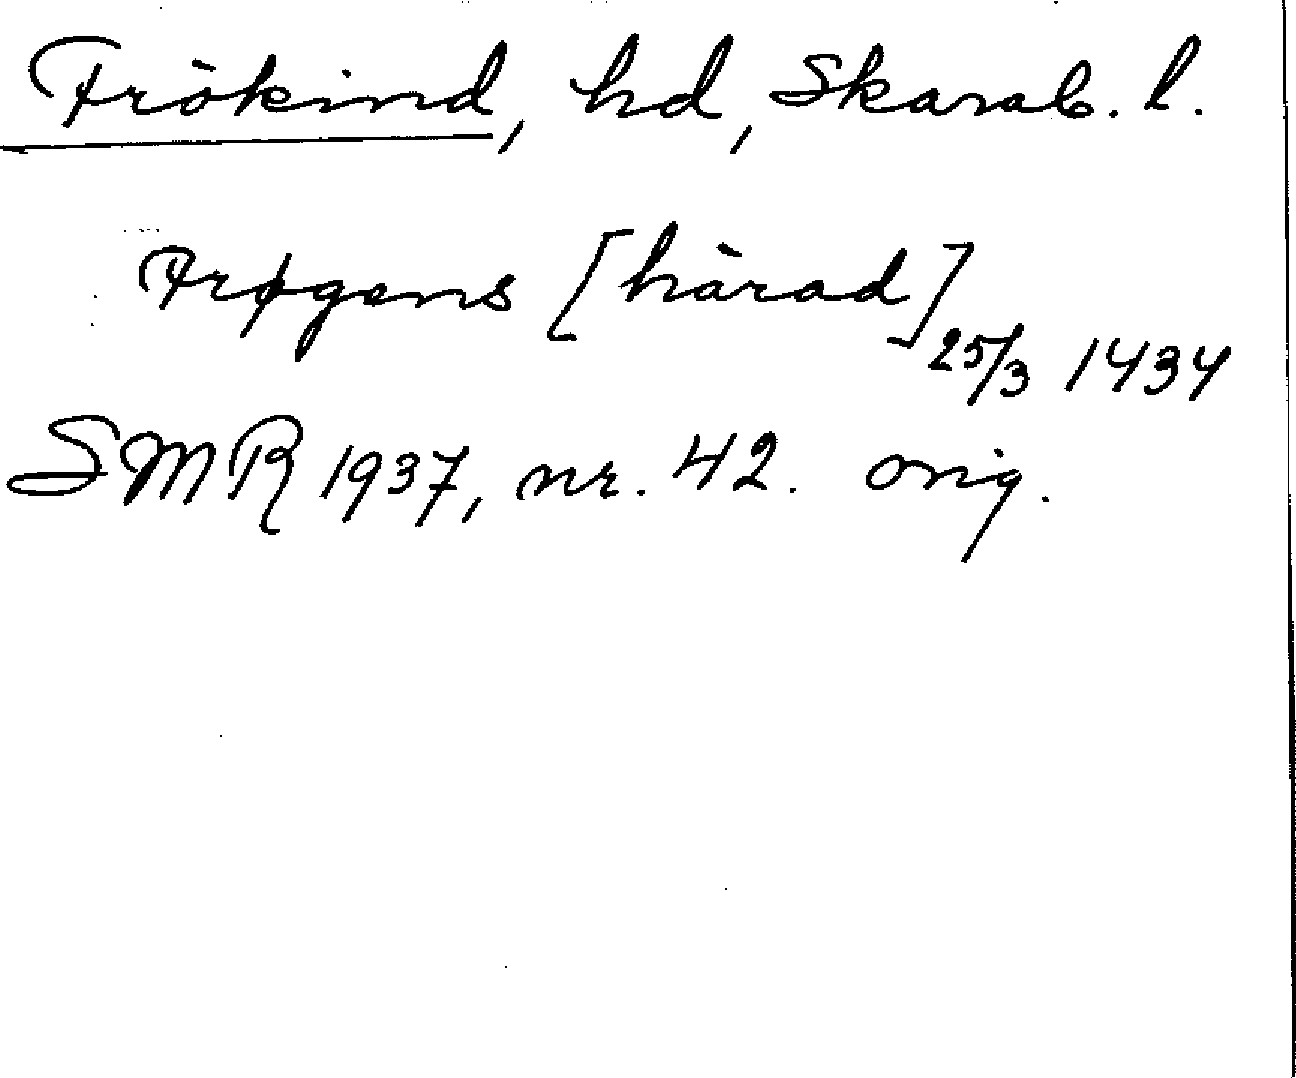 Frökind, hd, Skarab. l.
Frøgens [härad] 25/3 1434
SMR 1937, nr. 42. orig.